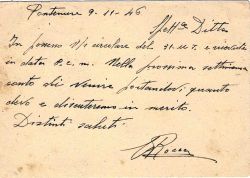 Pontenure 9-11-46
Spett. Ditta
In possesso V/ circolare del 31 u.s. e ricevuta
in data 8. c. m. Nella prossima settimana
conto di venire portandoVi quanto
devo e discuteremo in merito.
Distinti saluti
Rocca